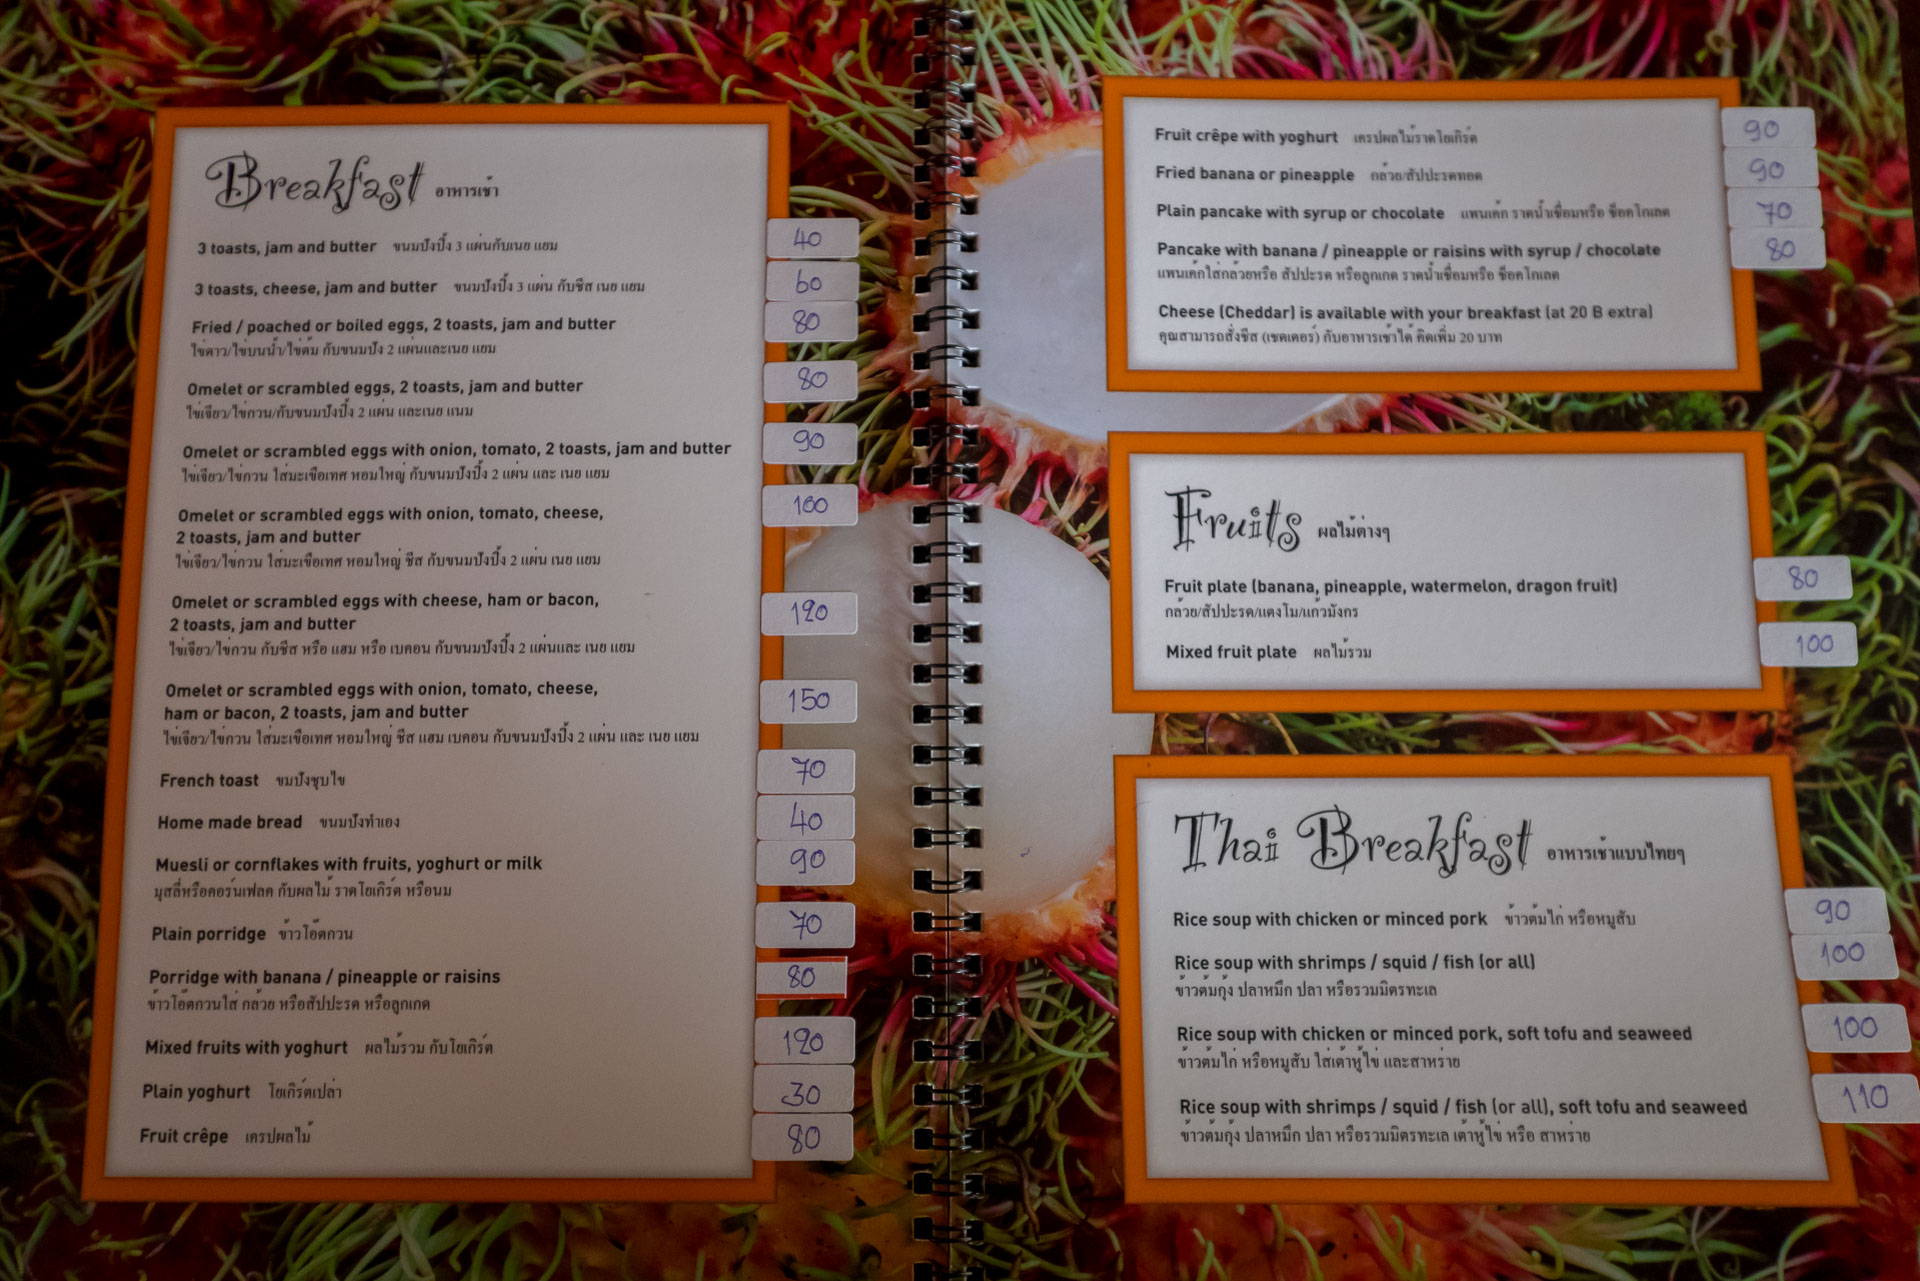 Breakfast อาหารเช้า
3 toasts, jam and butter ขนมปังปิ้ง 3 แผ่นกับเนย แยม 40
3 toasts, cheese, jam and butter ขนมปังปิ้ง 3 แผ่น กับชีส เนย แยม 60
Fried / poached or boiled eggs, 2 toasts, jam and butter 80
ไข่ดาว/ไข่บนน้ำ/ไข่ต้ม กับขนมปัง 2 แผ่นและเนย แยม
Omelet or scrambled eggs, 2 toasts, jam and butter 80
ไข่เจียว/ไข่กวน/กับขนมปังปิ้ง 2 แผ่น และเนย แนม
Omelet or scrambled eggs with onion, tomato, 2 toasts, jam and butter 90
ไข่เจียว/ไข่กวน ใส่มะเขือเทศ หอมใหญ่ กับขนมปังปิ้ง 2 แผ่น และ เนย แยม
Omelet or scrambled eggs with onion, tomato, cheese, 100
2 toasts, jam and butter
ไข่เจียว/ไข่กวน ใส่มะเขือเทศ หอมใหญ่ ชีส กับขนมปังปิ้ง 2 แผ่น เนย แยม
Omelet or scrambled eggs with cheese, ham or bacon, 120
2 toasts, jam and butter
ไข่เจียว/ไข่กวน กับชีส หรือ แฮม หรือ เบคอน กับขนมปังปิ้ง 2 แผ่นและ เนย แยม
Omelet or scrambled eggs with onion, tomato, cheese, 150
ham or bacon, 2 toasts, jam and butter
ไข่เจียว/ไข่กวน ใส่มะเขือเทศ หอมใหญ่ ชีส แฮม เบคอน กับขนมปังปิ้ง 2 แผ่น และ เนย แยม
French toast ขมปังชุบไข 70
Home made bread ขนมปังทำเอง 40
Muesli or cornflakes with fruits, yoghurt or milk 90
มุสลี่หรือคอร์นเฟลค กับผลไม้ ราดโยเกิร์ต หรือนม
Plain porridge ข้าวโอ๊ตกวน 70
Porridge with banana / pineapple or raisins 80
ข้าวโอ๊ตกวนใส่ กล้วย หรือสัปปะรด หรือลูกเกด
Mixed fruits with yoghurt ผลไม้รวม กับโยเกิร์ต 120
Plain yoghurt โยเกิร์ตเปล่า 30
Fruit crêpe เครปผลไม้ 80
Fruit crêpe with yoghurt เครปผลไม้ราดโยเกิร์ต 90
Fried banana or pineapple กล้วย/สัปปะรดทอด 90
Plain pancake with syrup or chocolate แพนเค้ก ราดน้ำเชื่อมหรือ ช็อคโกเลต 70
Pancake with banana / pineapple or raisins with syrup / chocolate 80
แพนเค้กใส่กล้วยหรือ สัปปะรด หรือลูกเกด ราดน้ำเชื่อมหรือ ช็อคโกเลต
Cheese (Cheddar) is available with your breakfast (at 20 B extra)
คุณสามารถสั่งชีส (เชดเดอร์) กับอาหารเช้าได้ คิดเพิ่ม 20 บาท
Fruits ผลไม้ต่างๆ
Fruit plate (banana, pineapple, watermelon, dragon fruit) 80
กล้วย/สัปปะรด/แตงโม/แก้วมังกร
Mixed fruit plate ผลไม้รวม 100
Thai Breakfast อาหารเช้าแบบไทยๆ
Rice soup with chicken or minced pork ข้าวต้มไก่ หรือหมูสับ 90
Rice soup with shrimps / squid / fish (or all) 100
ข้าวต้มกุ้ง ปลาหมึก ปลา หรือรวมมิตรทะเล
Rice soup with chicken or minced pork, soft tofu and seaweed 100
ข้าวต้มไก่ หรือหมูสับ ใส่เต้าหู้ไข่ และสาหร่าย
Rice soup with shrimps / squid / fish (or all), soft tofu and seaweed 110
ข้าวต้มกุ้ง ปลาหมึก ปลา หรือรวมมิตรทะเล เต้าหู้ไข่ หรือ สาหร่าย